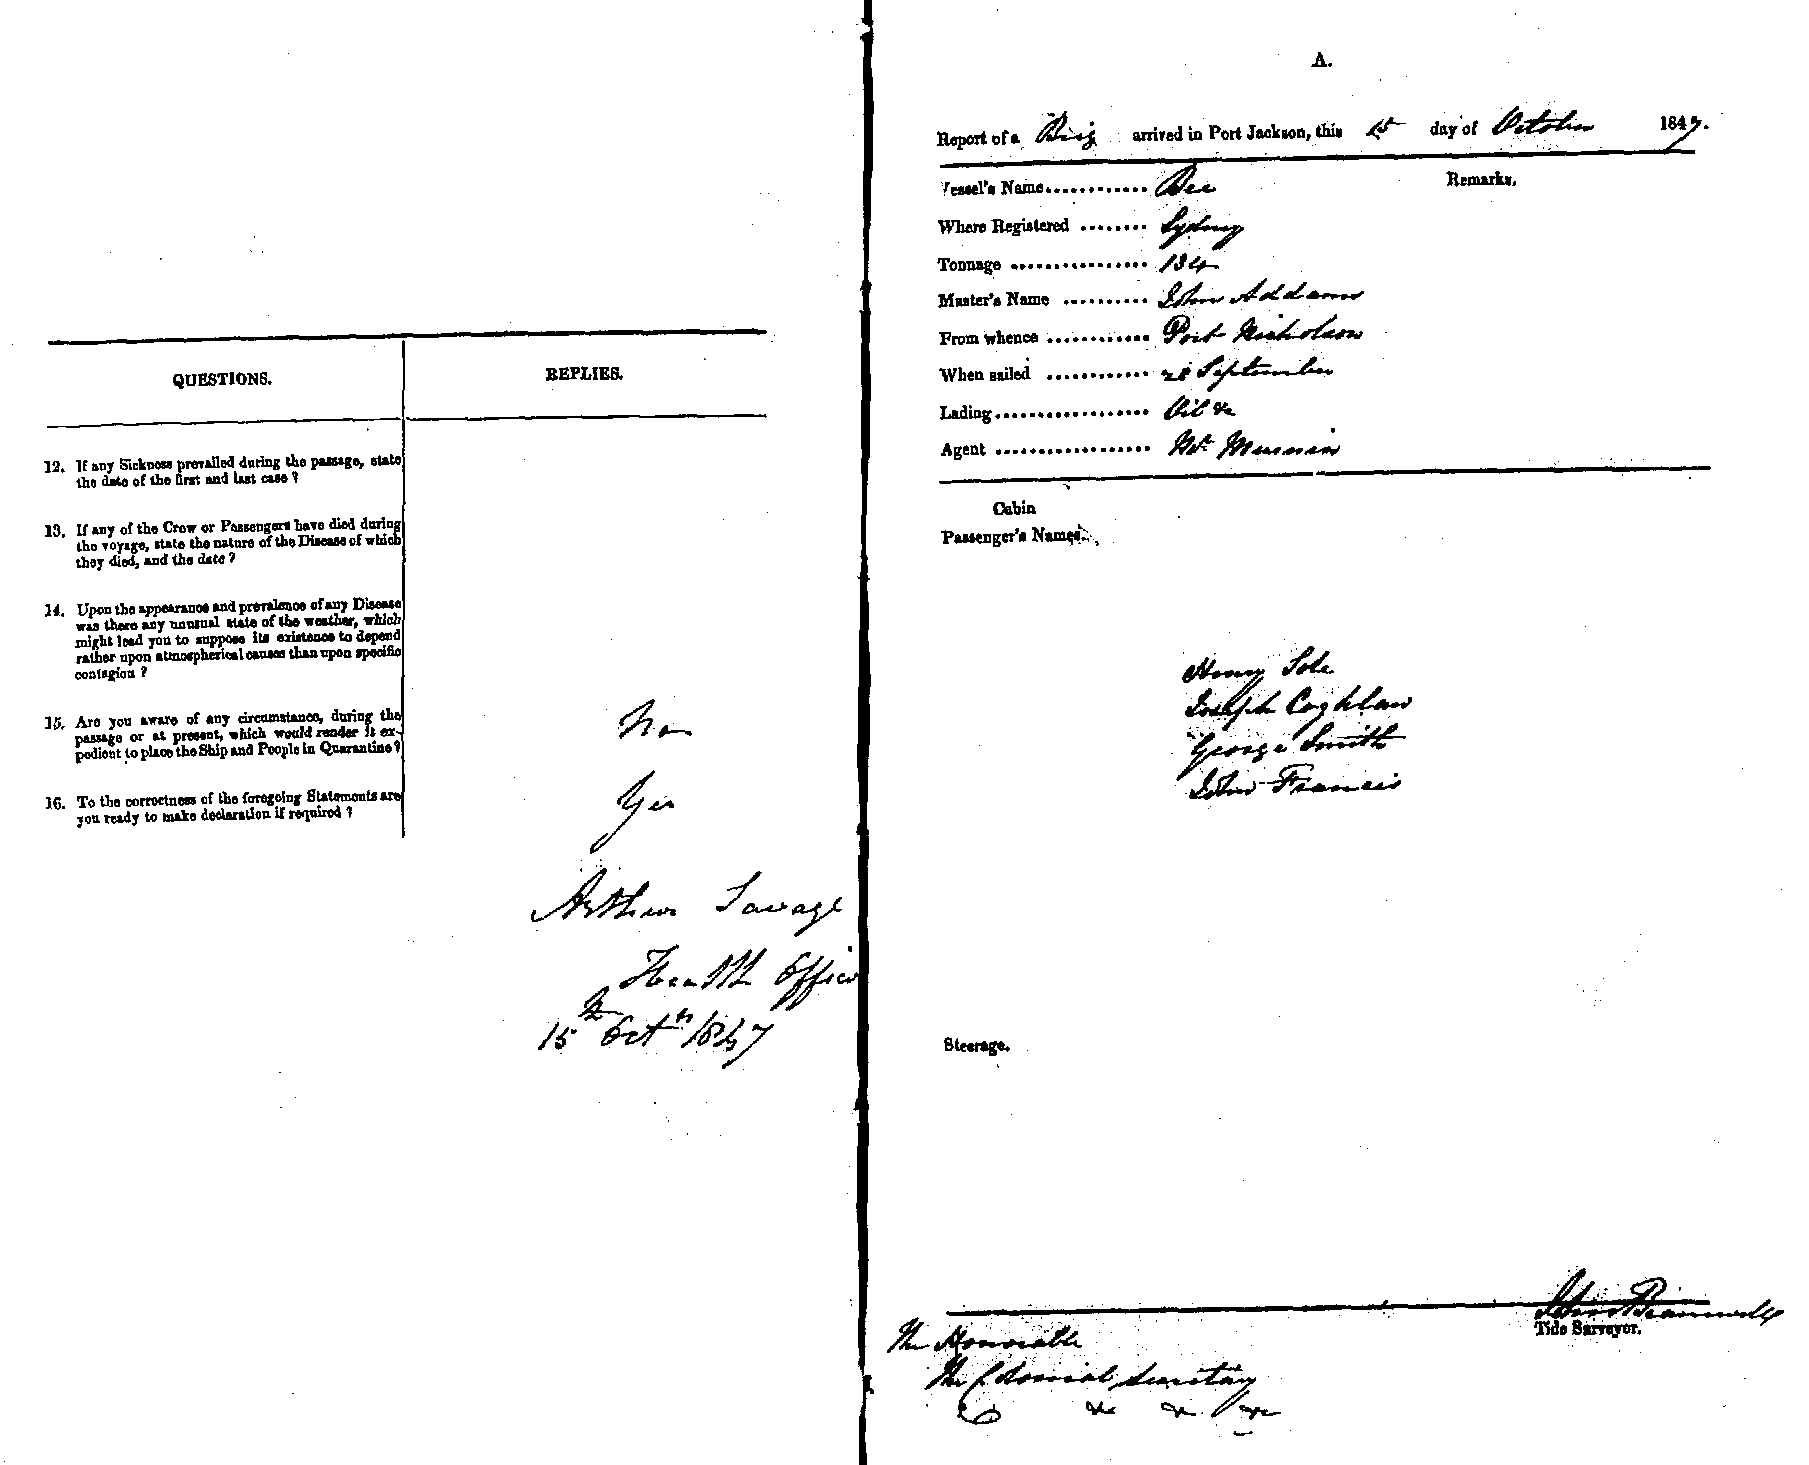 QUESTIONS.
REPLIES.
12. If any Sickness prevailed during the passage, state
the date of the first and last case ?
13. If any of the Crew or Passengers have died during
the voyage, state the nature of the Disease of which
they died, and the date ?
14. Upon the appearance and prevalence of any Disease
was there any unusual state of the weather, which
might lead you to suppose its existence to depend
rather upon atmospherical causes than upon specific
contagion ?
15. Are you aware of any circumstance, during the
passage or at present, which would render it ex-
pedient to place the Ship and People in Quarantine ?
No
16. To the correctness of the foregoing Statements are
you ready to make declaration if required ?
Yes
Arthur Savage
Health Officer
15th Octr 1847
A.
Report of a Brig arrived in Port Jackson, this 15 day of October 1847.
Remarks.
Vessel's Name............ Bee
Where Registered ........ Sydney
Tonnage ................ 134
Master's Name .......... John Addams
From whence ............ Port Nicholson
When sailed ............ 28 September
Lading.................. Oil &c
Agent ..................
Cabin
Passenger's Names.
Henry Sole
Joseph Coghlan
George Smith
John Francis
Steerage.
John Bramwell
Tide Surveyor.
The Honorable
The Colonial Secretary
&c &c &c